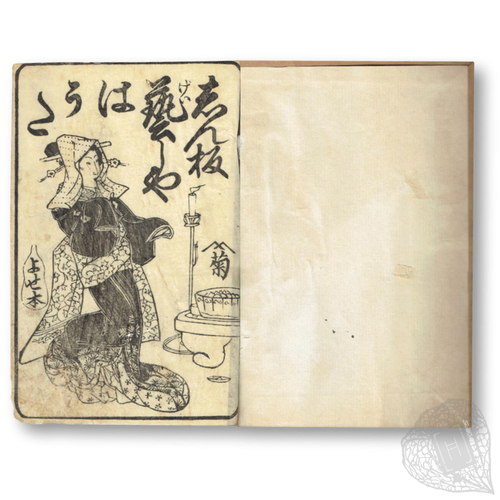 志ん板
藝しや
げい
はうた
菊
よせ本